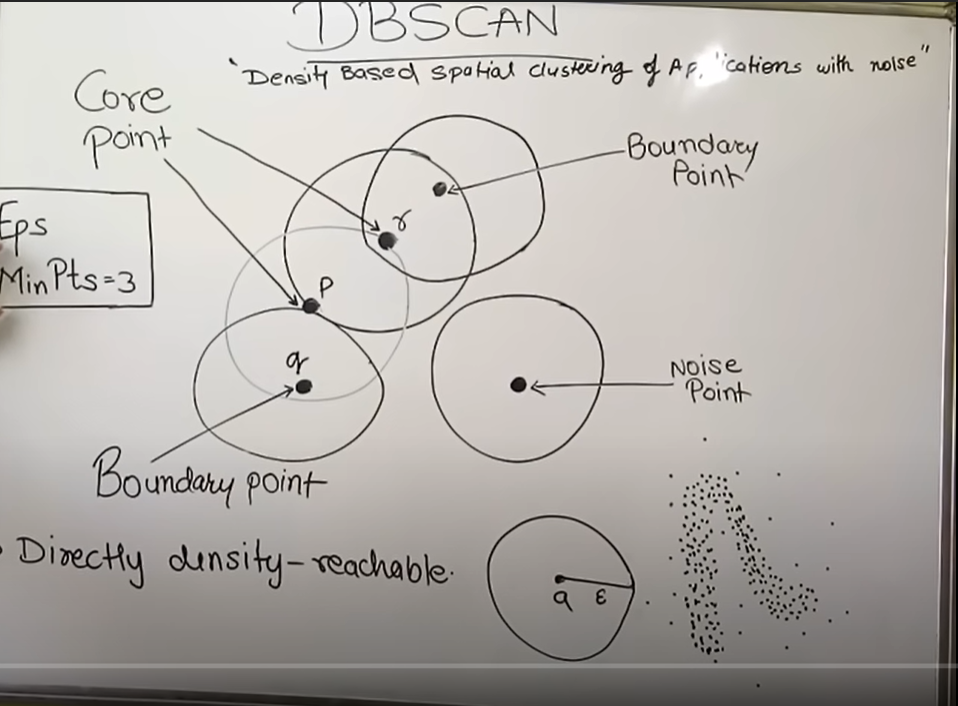 DBSCAN
"Density Based spatial clustering of Ap ications with noise"
Core
point
Boundary
Point
Eps
MinPts=3
r
P
q
Noise
Point
Boundary point
Directly density-reachable.
q ε